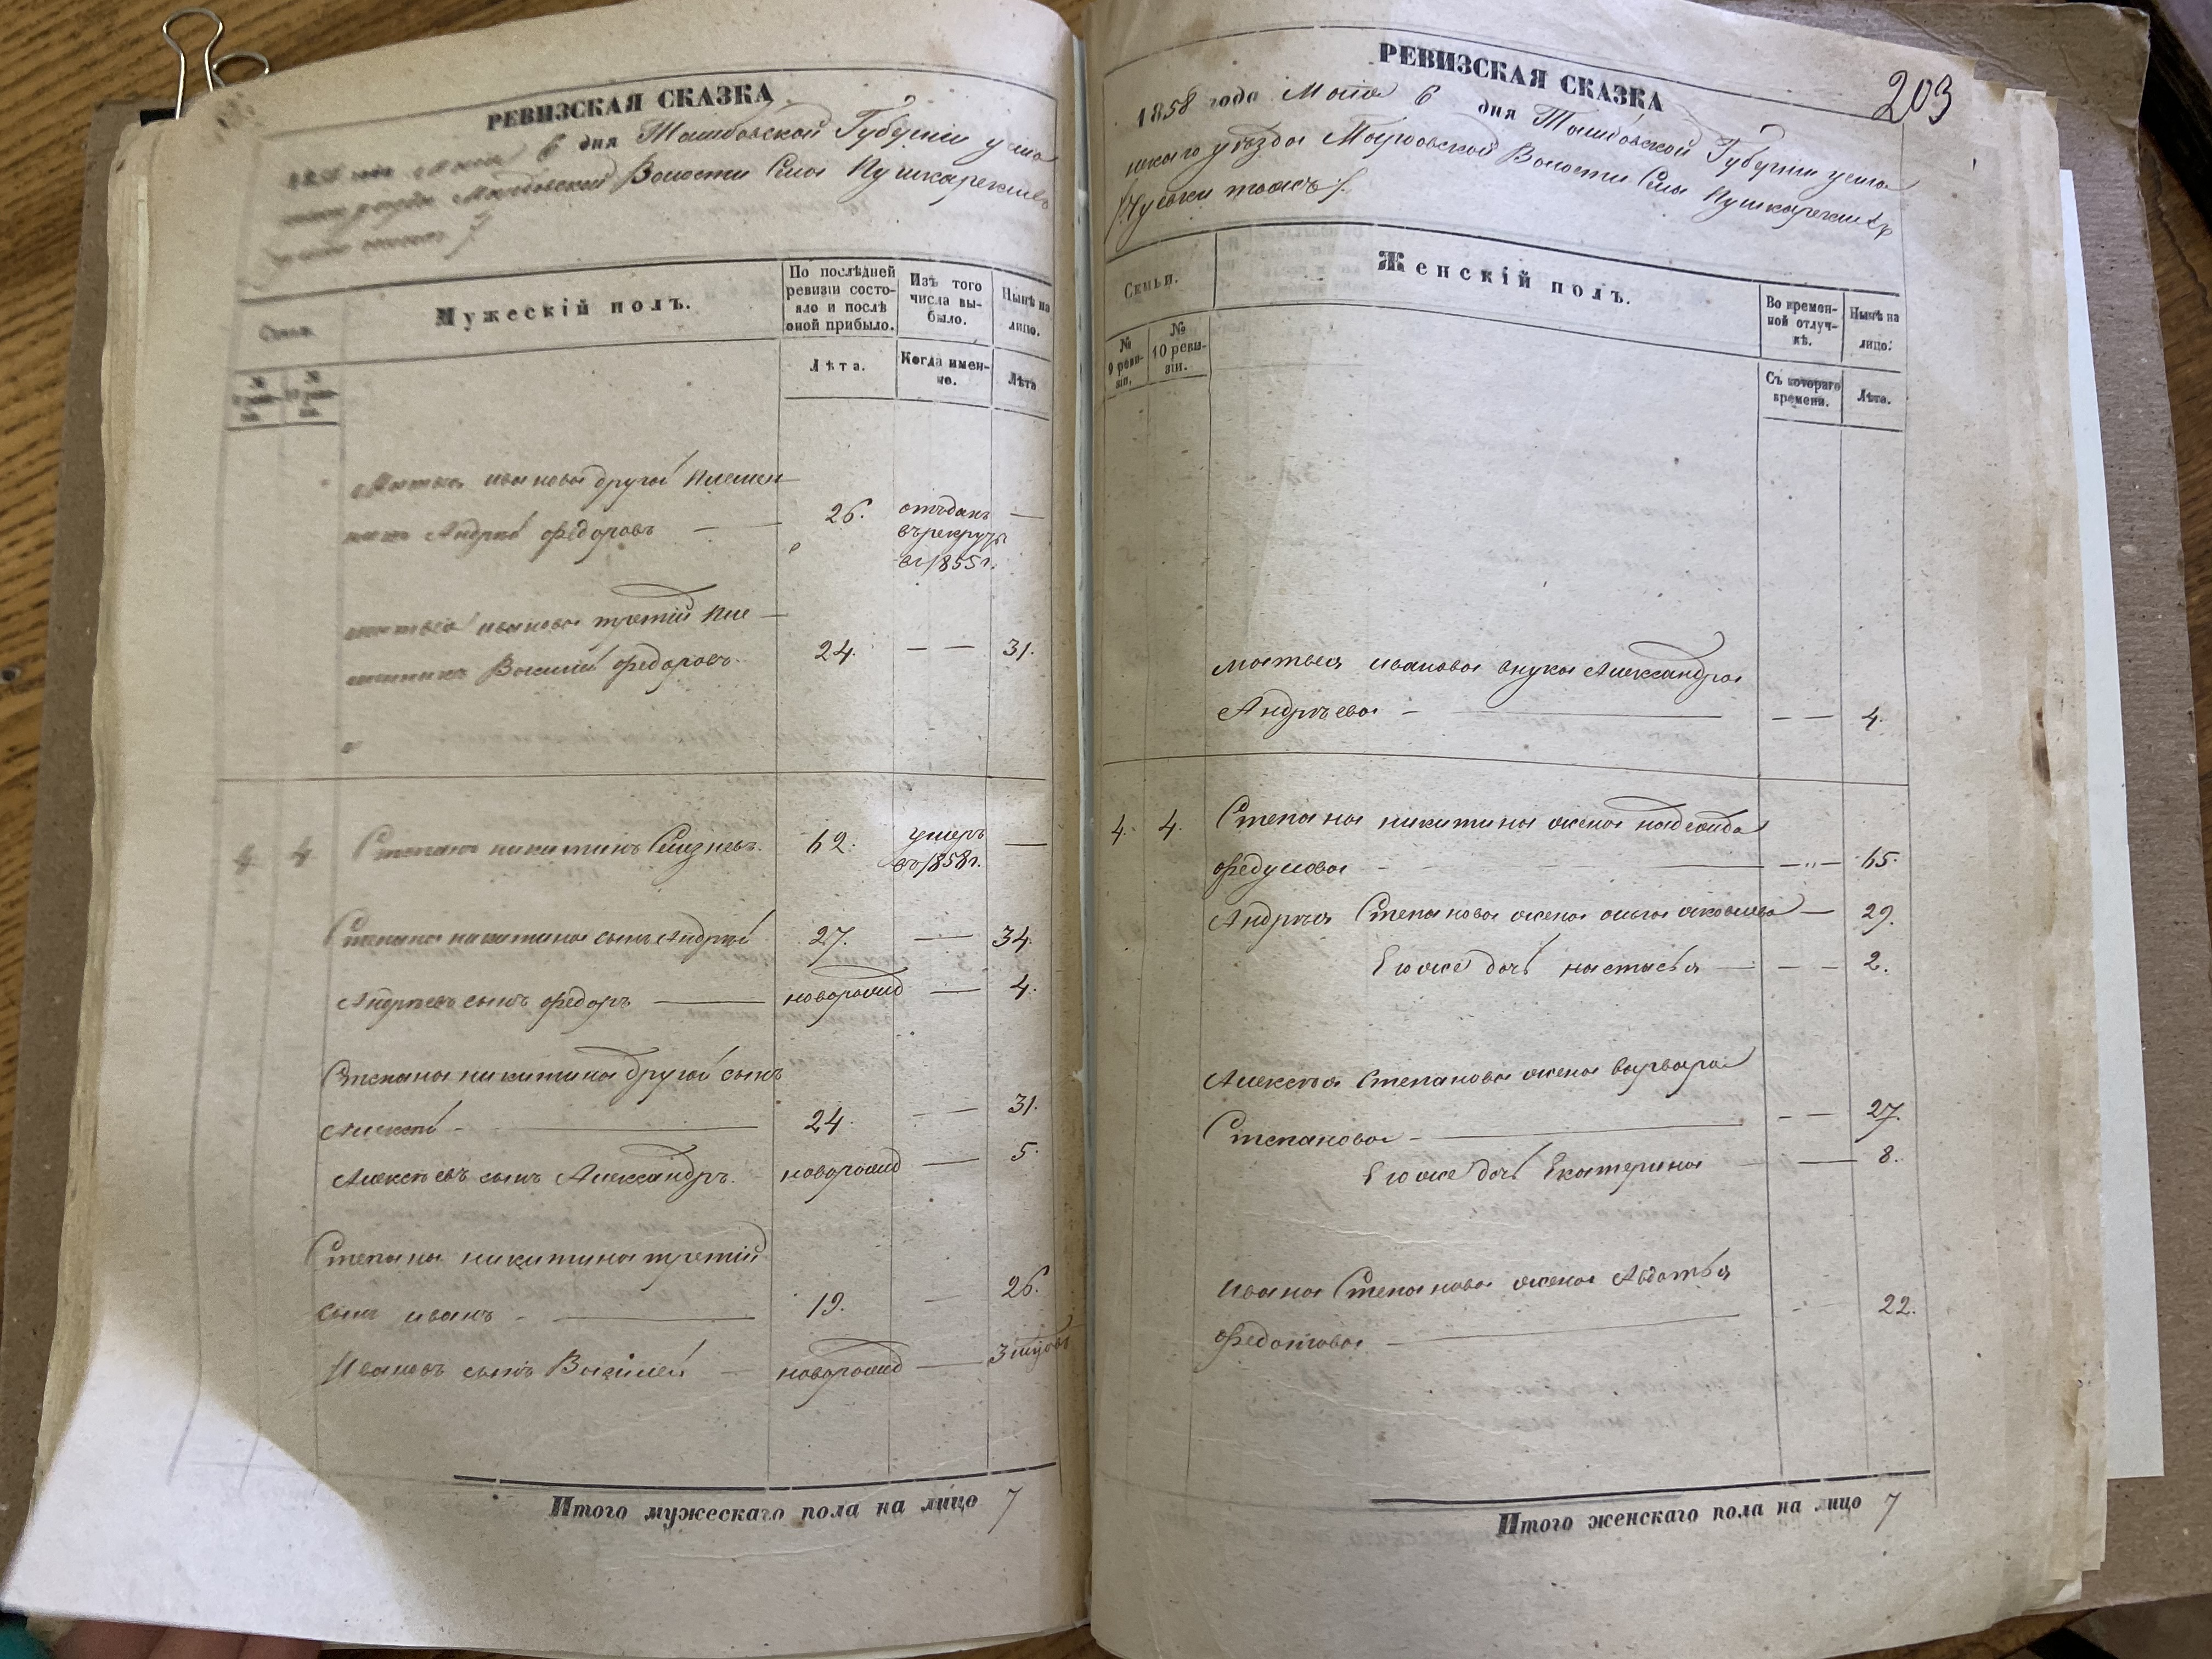 РЕВИЗСКАЯ СКАЗКА
6 дня Тамбовской Губерніи усма
Мордовской Волости Села Пушкарскихъ
Мужескій полъ.
По послѣдней ревизіи состояло и послѣ оной прибыло.
Изъ того числа выбыло.
Нынѣ на лицо.
Семьи.
Лѣта.
Когда именно.
Лѣта
№ 9 ревизіи.
№ 10 ревизіи.
Матвея иванова другой племен
никъ Андрей федоровъ — — 26. отъданъ —
въ рекруты
въ 1855 г.
матвея иванова третій пле —
менникъ Василий федоровъ. 24. — — 31.
4 4 Степанъ никитинъ 62. умеръ —
въ 1858 г.
Степана никитина сынъ Андрей 27. — 34.
Андреевъ сынъ федоръ — новорожд — 4.
Степана никитина другой сынъ
Алексей — 24. — 31.
Алексеевъ сынъ Александръ. новорожд — 5.
Степана никитина третій
сынъ иванъ — 19. — 26.
Ивановъ сынъ Василей — новорожд — 3
Итого мужескаго пола на лицо 7
РЕВИЗСКАЯ СКАЗКА
203
1858 года Маія 6 дня Тамбовской Губерніи усма
нскаго уѣзда Мордовской Волости Села Пушкарскихъ
Семьи.
Женскій полъ.
Во временной отлучкѣ.
Нынѣ на лицо.
№ 9 ревизіи.
№ 10 ревизіи.
Съ котораго времени.
Лѣта.
матвея иванова внука Александра
Андреева — — — 4.
4. 4. Степана никитина жена надежда
федулова — — 65.
Андрея Степанова жена ольга — 29.
Егоже дочь настасья — — — 2.
Алексея Степанова жена варвара
Степанова — — — 27.
Егоже дочь Екатерина — 8.
Ивана Степанова жена Авдотья
федотова — 22.
Итого женскаго пола на лицо 7